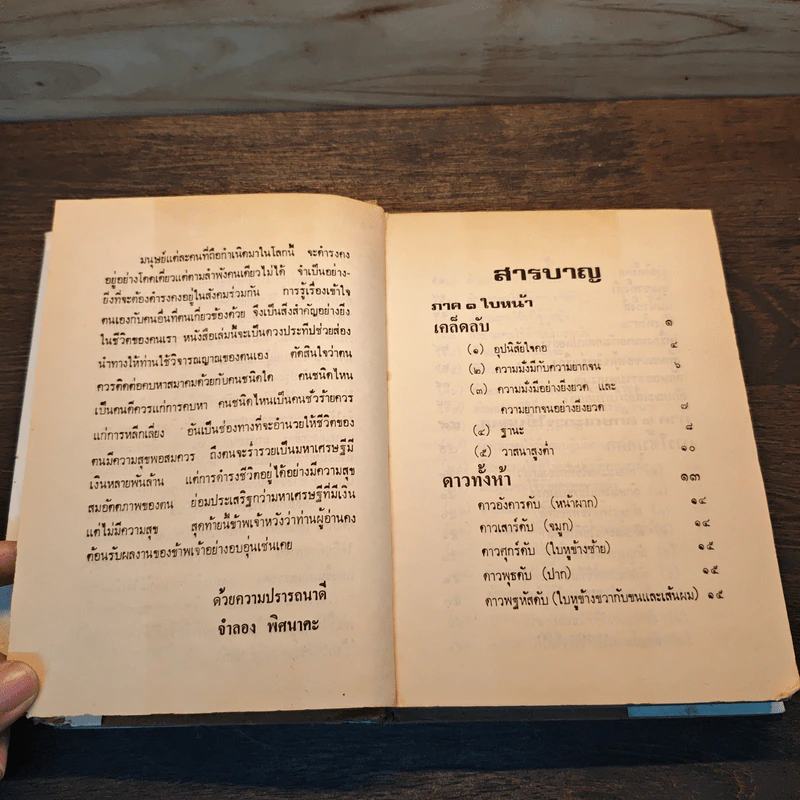 มนุษย์แต่ละคนที่ถือกำเนิดมาในโลกนี้ จะดำรงคง
อยู่อย่างโดดเดี่ยวแต่ตามลำพังคนเดียวไม่ได้ จำเป็นอย่าง-
ยิ่งที่จะต้องดำรงคงอยู่ในสังคมร่วมกัน การรู้เรื่องเข้าใจ
ตนเองกับคนอื่นที่ตนเกี่ยวข้องด้วย จึงเป็นสิ่งสำคัญอย่างยิ่ง
ในชีวิตของคนเรา หนังสือเล่มนี้จะเป็นดวงประทีปช่วยส่อง
นำทางให้ท่านใช้วิจารณญาณของตนเอง ตัดสินใจว่าตน
ควรติดต่อคบหาสมาคมด้วยกับคนชนิดใด คนชนิดไหน
เป็นคนดีควรแก่การคบหา คนชนิดไหนเป็นคนชั่วร้ายควร
แก่การหลีกเลี่ยง อันเป็นช่องทางที่จะอำนวยให้ชีวิตของ
ตนมีความสุขพอสมควร ถึงตนจะร่ำรวยเป็นมหาเศรษฐีมี
เงินหลายพันล้าน แต่การดำรงชีวิตอยู่ได้อย่างมีความสุข
สมอัตตภาพของตน ย่อมประเสริฐกว่ามหาเศรษฐีที่มีเงิน
แต่ไม่มีความสุข สุดท้ายนี้ข้าพเจ้าหวังว่าท่านผู้อ่านคง
ต้อนรับผลงานของข้าพเจ้าอย่างอบอุ่นเช่นเคย
ด้วยความปรารถนาดี
จำลอง พิศนาคะ
สารบาญ
ภาค ๑ ใบหน้า
เคล็ดลับ ๑
(๑) อุปนิสัยใจคอ ๕
(๒) ความมั่งมีกับความยากจน ๖
(๓) ความมั่งมีอย่างยิ่งยวด และ
ความยากจนอย่างยิ่งยวด ๗
(๔) ฐานะ ๘
(๕) วาสนาสูงต่ำ ๑๐
ดาวทั้งห้า ๑๓
ดาวอังคารดับ (หน้าผาก) ๑๔
ดาวเสาร์ดับ (จมูก) ๑๔
ดาวศุกร์ดับ (ใบหูข้างซ้าย) ๑๕
ดาวพุธดับ (ปาก) ๑๕
ดาวพฤหัสดับ (ใบหูข้างขวากับขนและเส้นผม) ๑๕